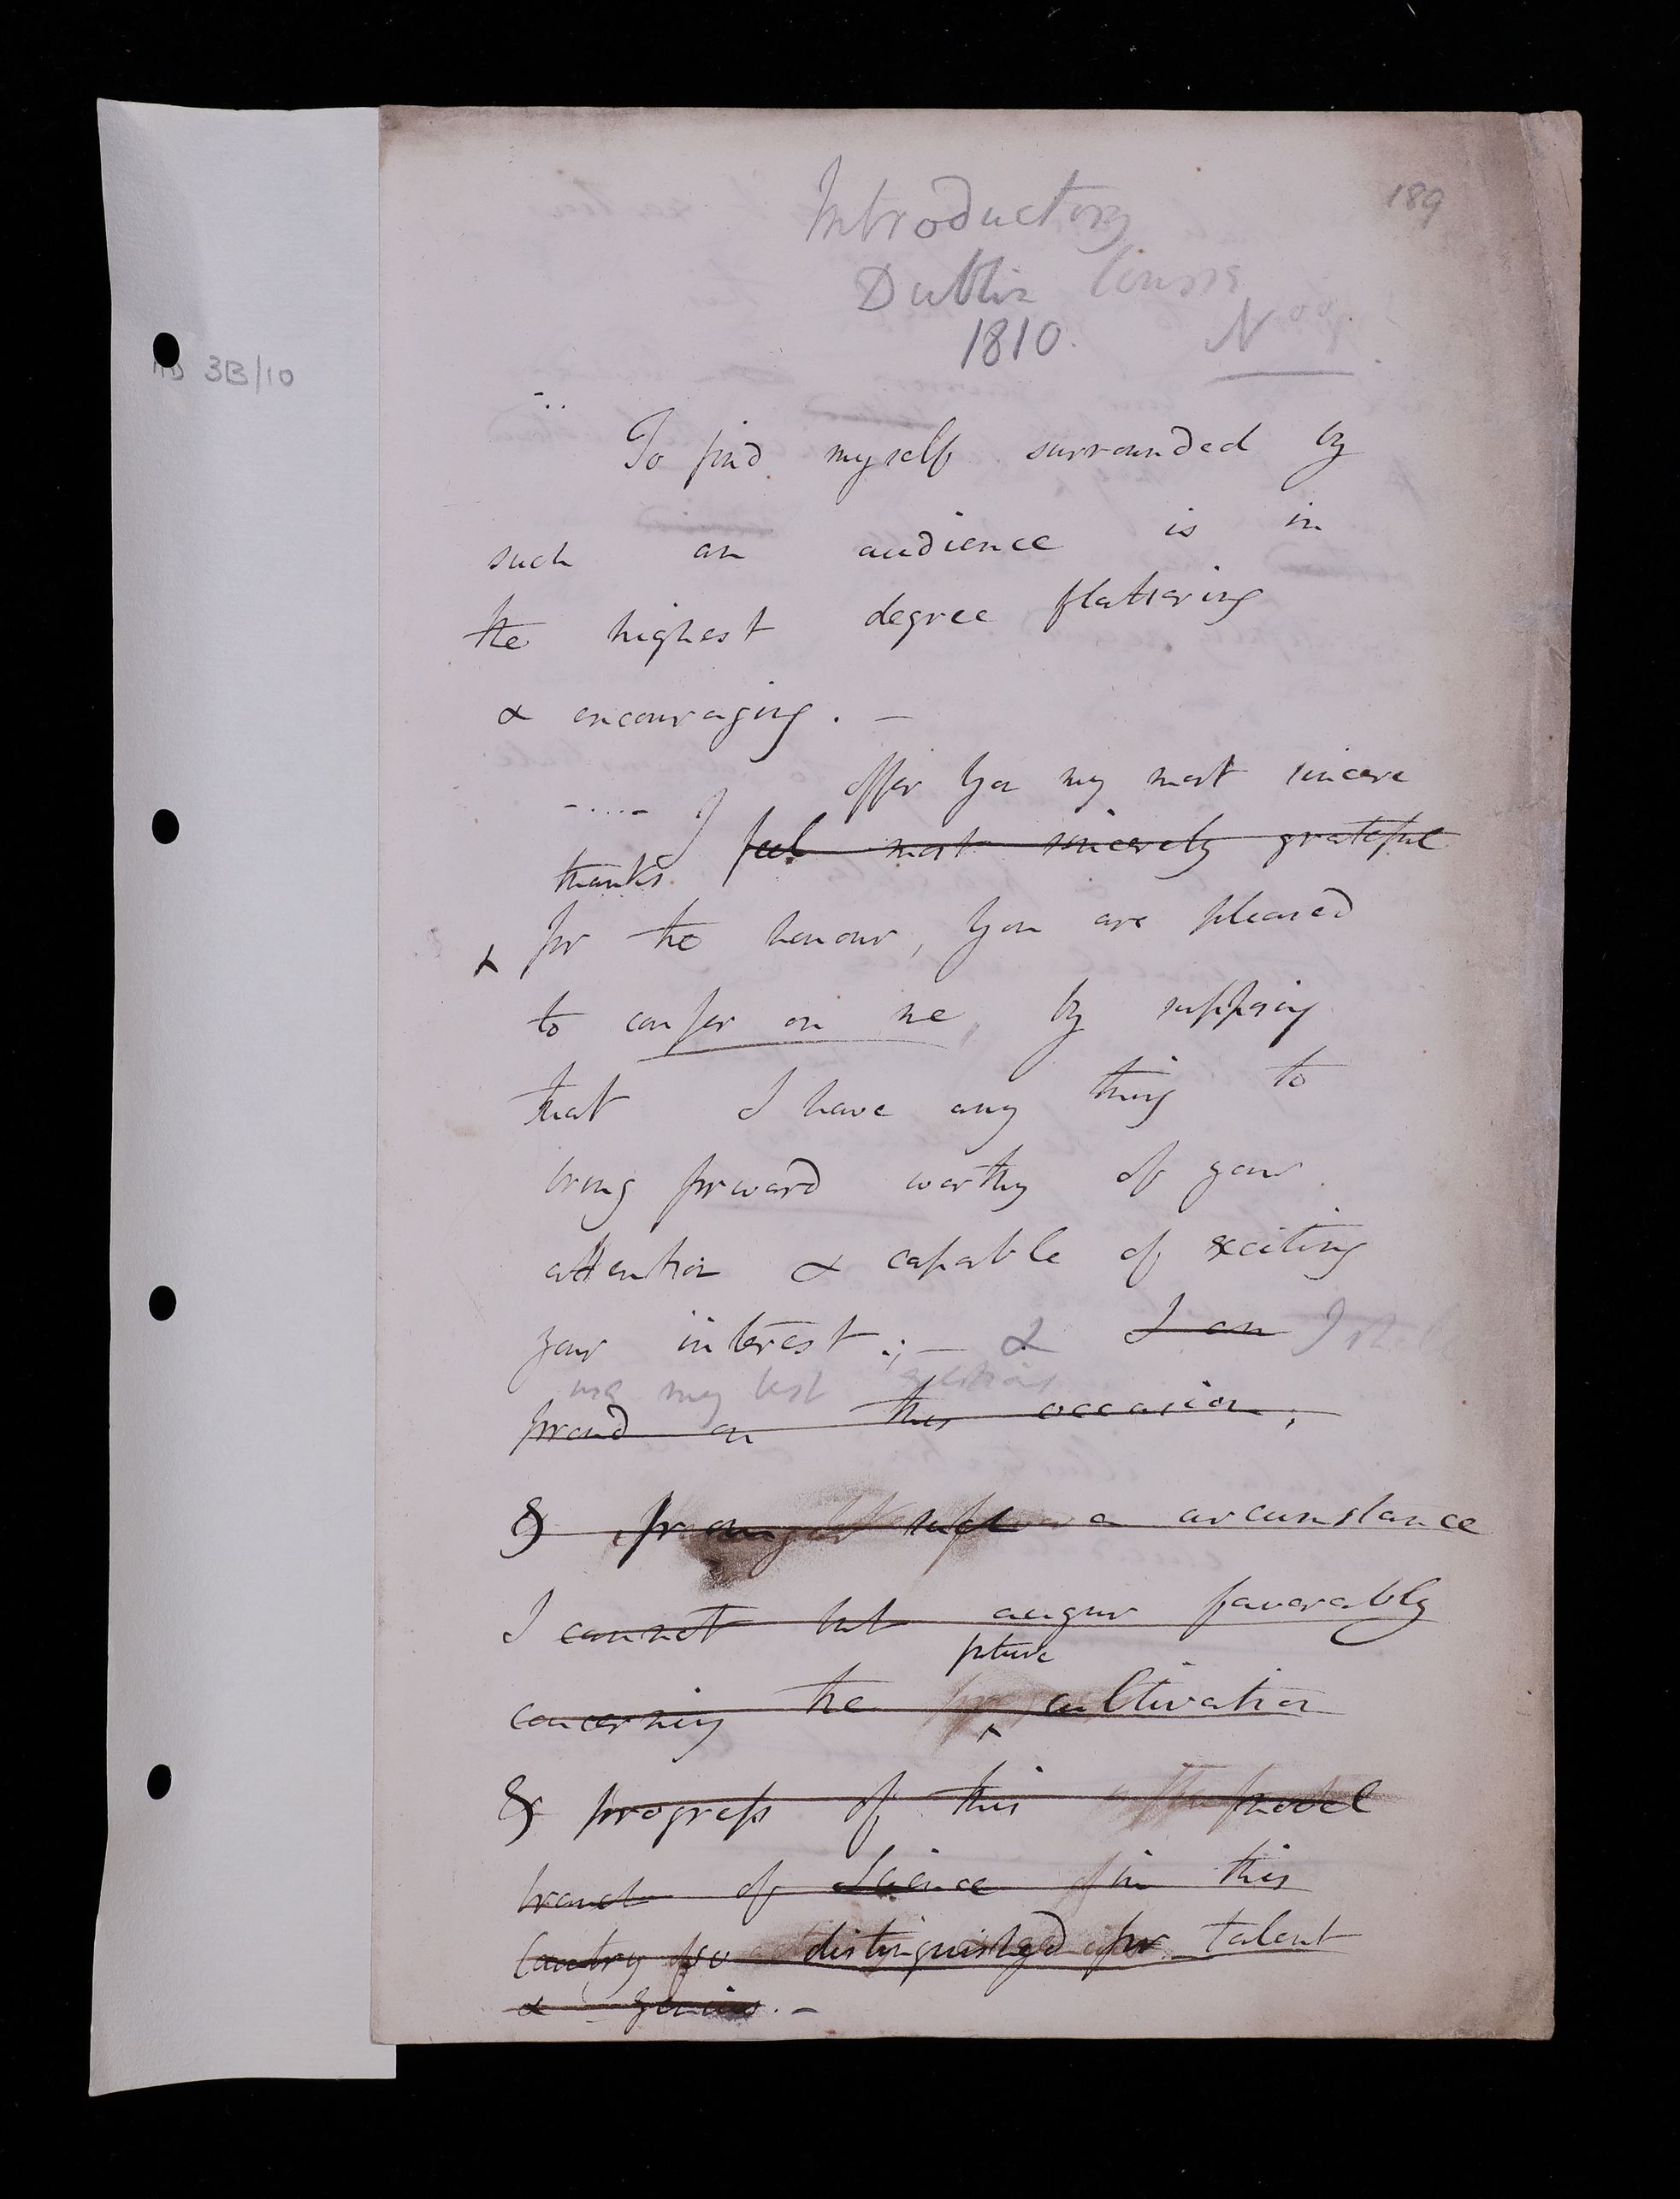 HD 3B/10
189
Introductory
Dublin Course
1810.
To find myself surrounded by
such an audience is in
the highest degree flattering
& encouraging. —
offer you my most sincere
I feel most sincerely grateful
thanks
for the honour, you are pleased
to confer on me, by supposing
that I have any thing to
bring forward worthy of your
attention & capable of exciting
your interest; — & I am I shall
use my best exertions
proud on this occasion;
& from such a circumstance
I cannot but augur favorably
future
concerning the cultivation
& progress of this novel
branch of Science in this
Country so distinguished for talent
& genius. —